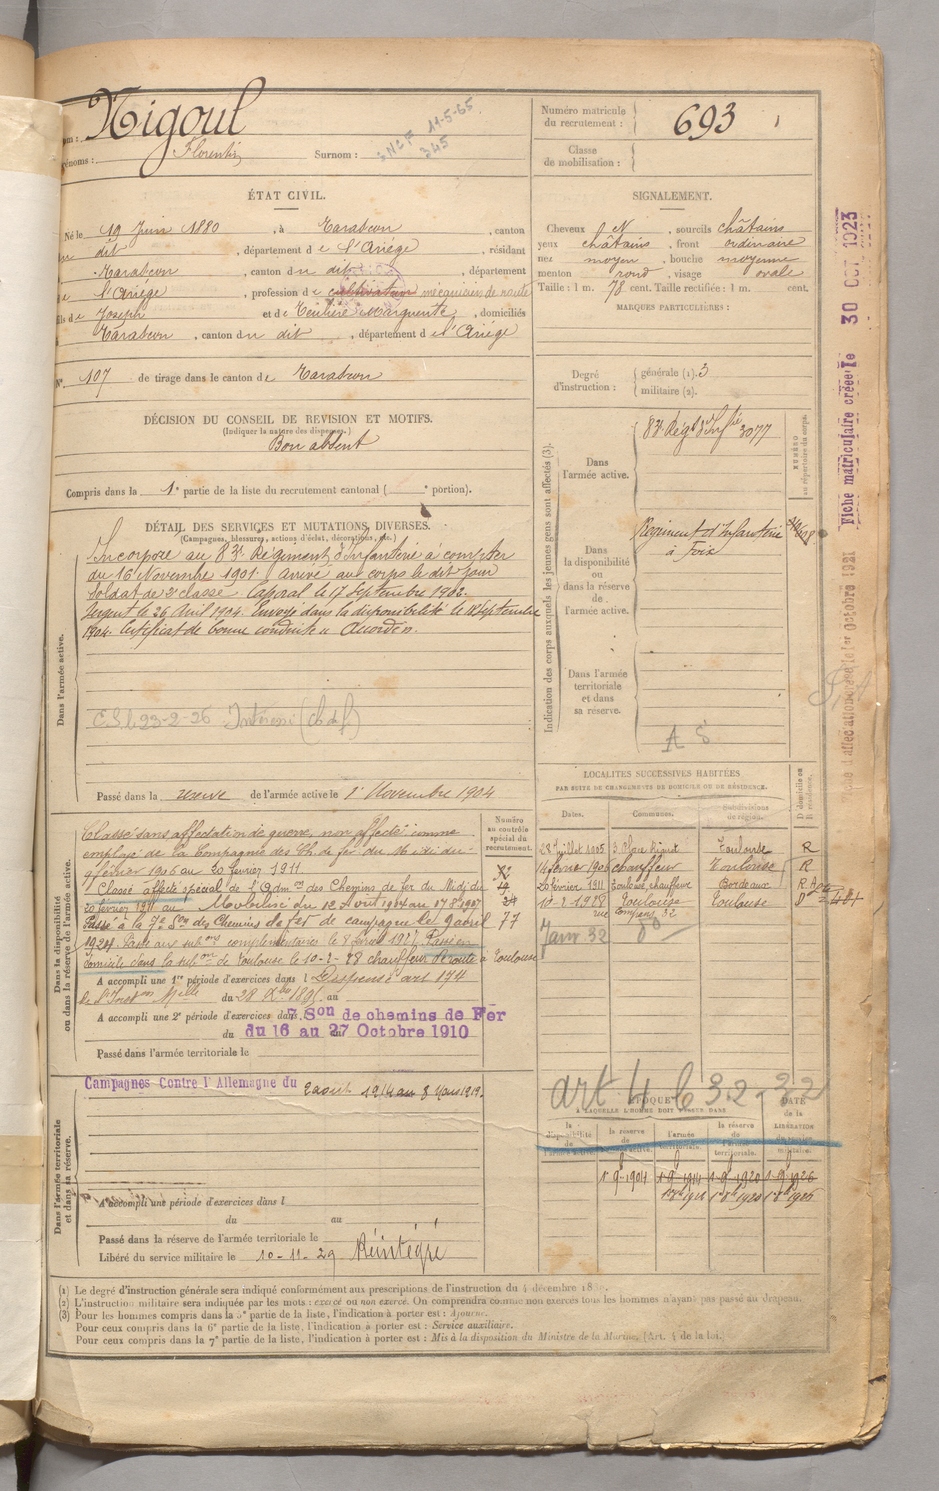 Nom : Nigoul
Prénoms : Florentin Surnom :
SNCF 11-5-65
345
Numéro matricule du recrutement : 693
Classe de mobilisation :
ÉTAT CIVIL.
Né le 19 Juin 1880, à Tarascon, canton
dudit, département de l'Ariège, résidant
Tarascon, canton du dit, département
de l'Ariège, profession de cultivateur mécanicien de route
fils de Joseph et de Marguerite, domiciliés
Tarascon, canton du dit, département de l'Ariège
N° 107 de tirage dans le canton de Tarascon
SIGNALEMENT.
Cheveux N, sourcils châtains
yeux châtains, front ordinaire
nez moyen, bouche moyenne
menton rond, visage ovale
Taille : 1 m. 78 cent. Taille rectifiée : 1 m. cent.
MARQUES PARTICULIÈRES :
Degré d'instruction : générale (1). 3
militaire (2).
DÉCISION DU CONSEIL DE REVISION ET MOTIFS.
(Indiquer la nature des dispenses.)
Bon absent
Compris dans la 1e partie de la liste du recrutement cantonal ( e portion).
DÉTAIL DES SERVICES ET MUTATIONS DIVERSES.
(Campagnes, blessures, actions d'éclat, décorations, etc.)
Dans l'armée active.
Incorporé au 83e Régiment d'Infanterie à compter
du 16 Novembre 1901. Arrivé au corps le dit jour
Soldat de 2e classe. Caporal le 17 Septembre 1902.
Sergent le 26 Avril 1904. Envoyé dans la disponibilité le 18 Septembre
1904. Certificat de bonne conduite "Accordé".
23-2-26
Passé dans la réserve de l'armée active le 1er Novembre 1904
Indication des corps auxquels les jeunes gens sont affectés (3).
Dans l'armée active.
83e Régt d'Infie 3077
NUMÉRO au répertoire du corps.
Dans la disponibilité ou dans la réserve de l'armée active.
Régiment d'Infanterie
à Foix
Dans l'armée territoriale et dans sa réserve.
A S
Dans la disponibilité ou dans la réserve de l'armée active.
Numéro au contrôle spécial du recrutement.
Classé sans affectation de guerre, non affecté comme
employé de la Compagnie des Ch. de fer du Midi du
9 février 1906 au 20 février 1911.
Classé affecté spécial de l'Adm on des Chemins de fer du Midi du
20 février 1911 au Mobilisé du
Passé à la 7e Son des Chemins de fer de campagne le 9 avril 77
1927. Passé aux subons complémentaires le 8 février 1927. Passé en
domicile dans la subon de Toulouse le 10-2-28 chauffeur de route à Toulouse
A accompli une 1re période d'exercices dans l Dispensé art 174
A accompli une 2e période d'exercices dans 7 Son de chemins de Fer
du 16 au 27 Octobre 1910
Passé dans l'armée territoriale le
LOCALITÉS SUCCESSIVES HABITÉES
PAR SUITE DE CHANGEMENTS DE DOMICILE OU DE RÉSIDENCE.
Dates. Communes. Subdivisions de région. D domicile ou R résidence.
28 Juillet 1905 Toulouse R
14 février 1906 chauffeur Toulouse
20 février 1911 Toulouse, chauffeur Bordeaux R
10-2-1928 Toulouse Toulouse
Janv 32
Dans l'armée territoriale et dans sa réserve.
Campagnes Contre l'Allemagne du 2 août 1914 au 8 Mars 1919.
A accompli une période d'exercices dans l
du au
Passé dans la réserve de l'armée territoriale le
Libéré du service militaire le 10-11-29 Réintégré
art 4
ÉPOQUE
À LAQUELLE L'HOMME DOIT PASSER DANS
DATE de la LIBÉRATION du service militaire.
la disponibilité de l'armée active. la réserve de l'armée active. l'armée territoriale. la réserve de l'armée territoriale.
1-9-1904 1-9-1914 1-9-1920 1-9-1926
(1) Le degré d'instruction générale sera indiqué conformément aux prescriptions de l'instruction du 4 décembre 18
(2) L'instruction militaire sera indiquée par les mots : exercé ou non exercé. On comprendra comme non exercés tous les hommes n'ayant pas passé au drapeau.
(3) Pour les hommes compris dans la 5e partie de la liste, l'indication à porter est : Ajourné.
Pour ceux compris dans la 6e partie de la liste, l'indication à porter est : Service auxiliaire.
Pour ceux compris dans la 7e partie de la liste, l'indication à porter est : Mis à la disposition du Ministre de la Marine. (Art. 4 de la loi.)
Fiche matriculaire créée le 30 OCT 1923